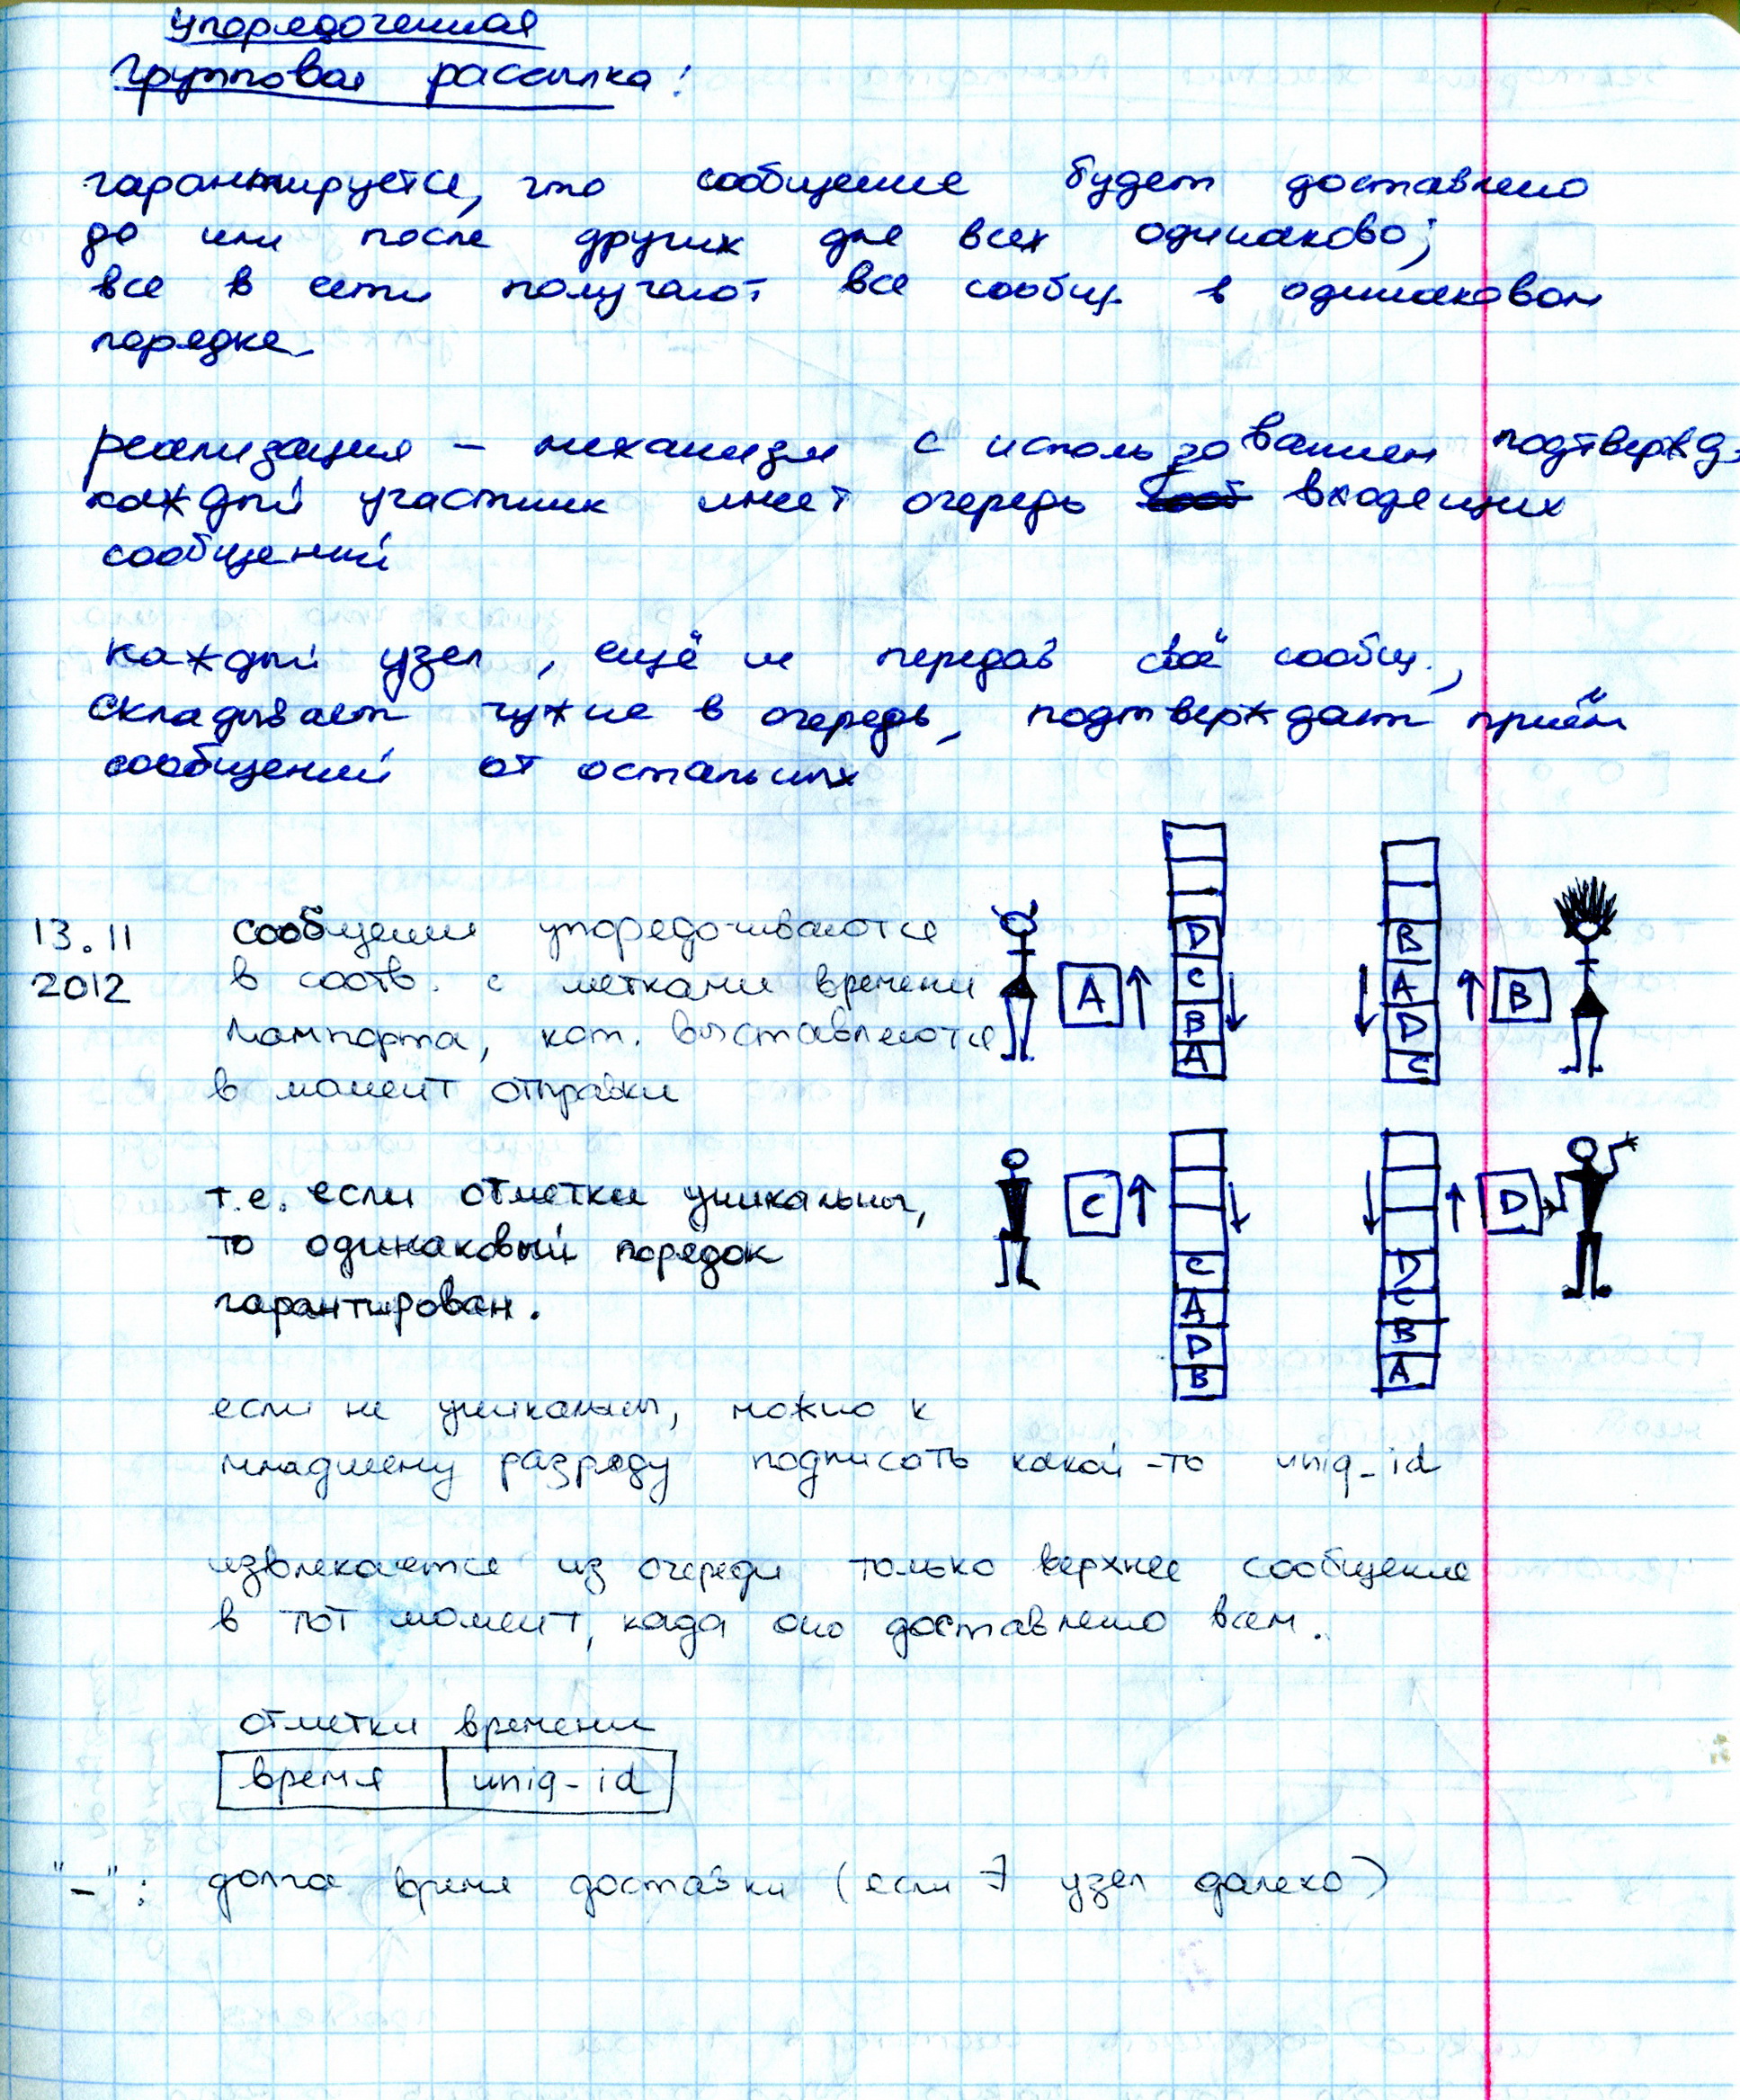 упорядоченная
групповая рассылка:
гарантируется, что сообщение будет доставлено
до или после других для всех одинаково;
все в сети получают все сообщ. в одинаковом
порядке.
реализация – механизм с использованием подтвержд.
каждый участник имеет очередь входящих
сообщений
каждый узел, ещё не передав своё сообщ.,
складывает чужие в очередь, подтверждает приём
сообщений от остальных
13.11
2012
сообщения упорядочиваются
в соотв. с метками времени
Лампорта, кот. выставляются
в момент отправки
A
D
C
B
A
B
A
D
C
B
т.е. если отметки уникальны,
то одинаковый порядок
гарантирован.
C
C
A
D
B
D
C
B
A
D
если не уникальны, можно к
младшему разряду подписать какой-то uniq-id
извлекается из очереди только верхнее сообщение
в тот момент, када оно доставлено всем.
отметки времени
время uniq-id
"–": долго время доставки (если ∃ узел далеко)